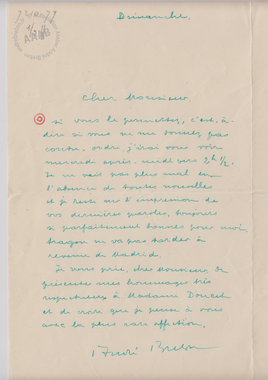 Dimanche.
Cher Monsieur,
si vous le permettez, c'est-à-
dire si vous ne me donnez pas
contre-ordre, j'irai vous voir
mercredi après-midi vers 2h ½.
Je ne vais pas plus mal en
l'absence de toutes nouvelles
et je reste sur l'impression de
vos dernières paroles, toujours
si parfaitement bonnes pour moi.
Aragon ne va pas tarder à
revenir de Madrid.
Je vous prie, cher Monsieur, de
présenter mes hommages très
respectueux à Madame Doucet
et de noter que je pense à vous
avec la plus rare affection.
André Breton